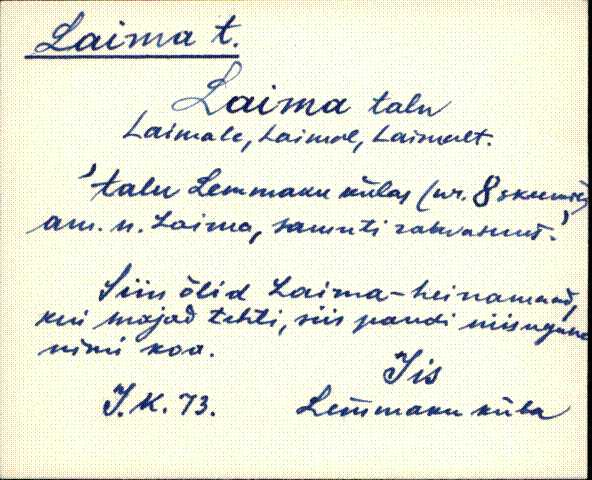 Laima t.
Laima talu
Laimale, Laimal, Laimalt.
'talu Lemmaku külas (nr. 8 skeemis)
am. n. Laima, samuti rahvasuus.'
Siin õlid Laima-heinamaad,
kui majad tehti, siis pandi niisugune
nimi koa.
Iis
I.K. 73. Lemmaku küla